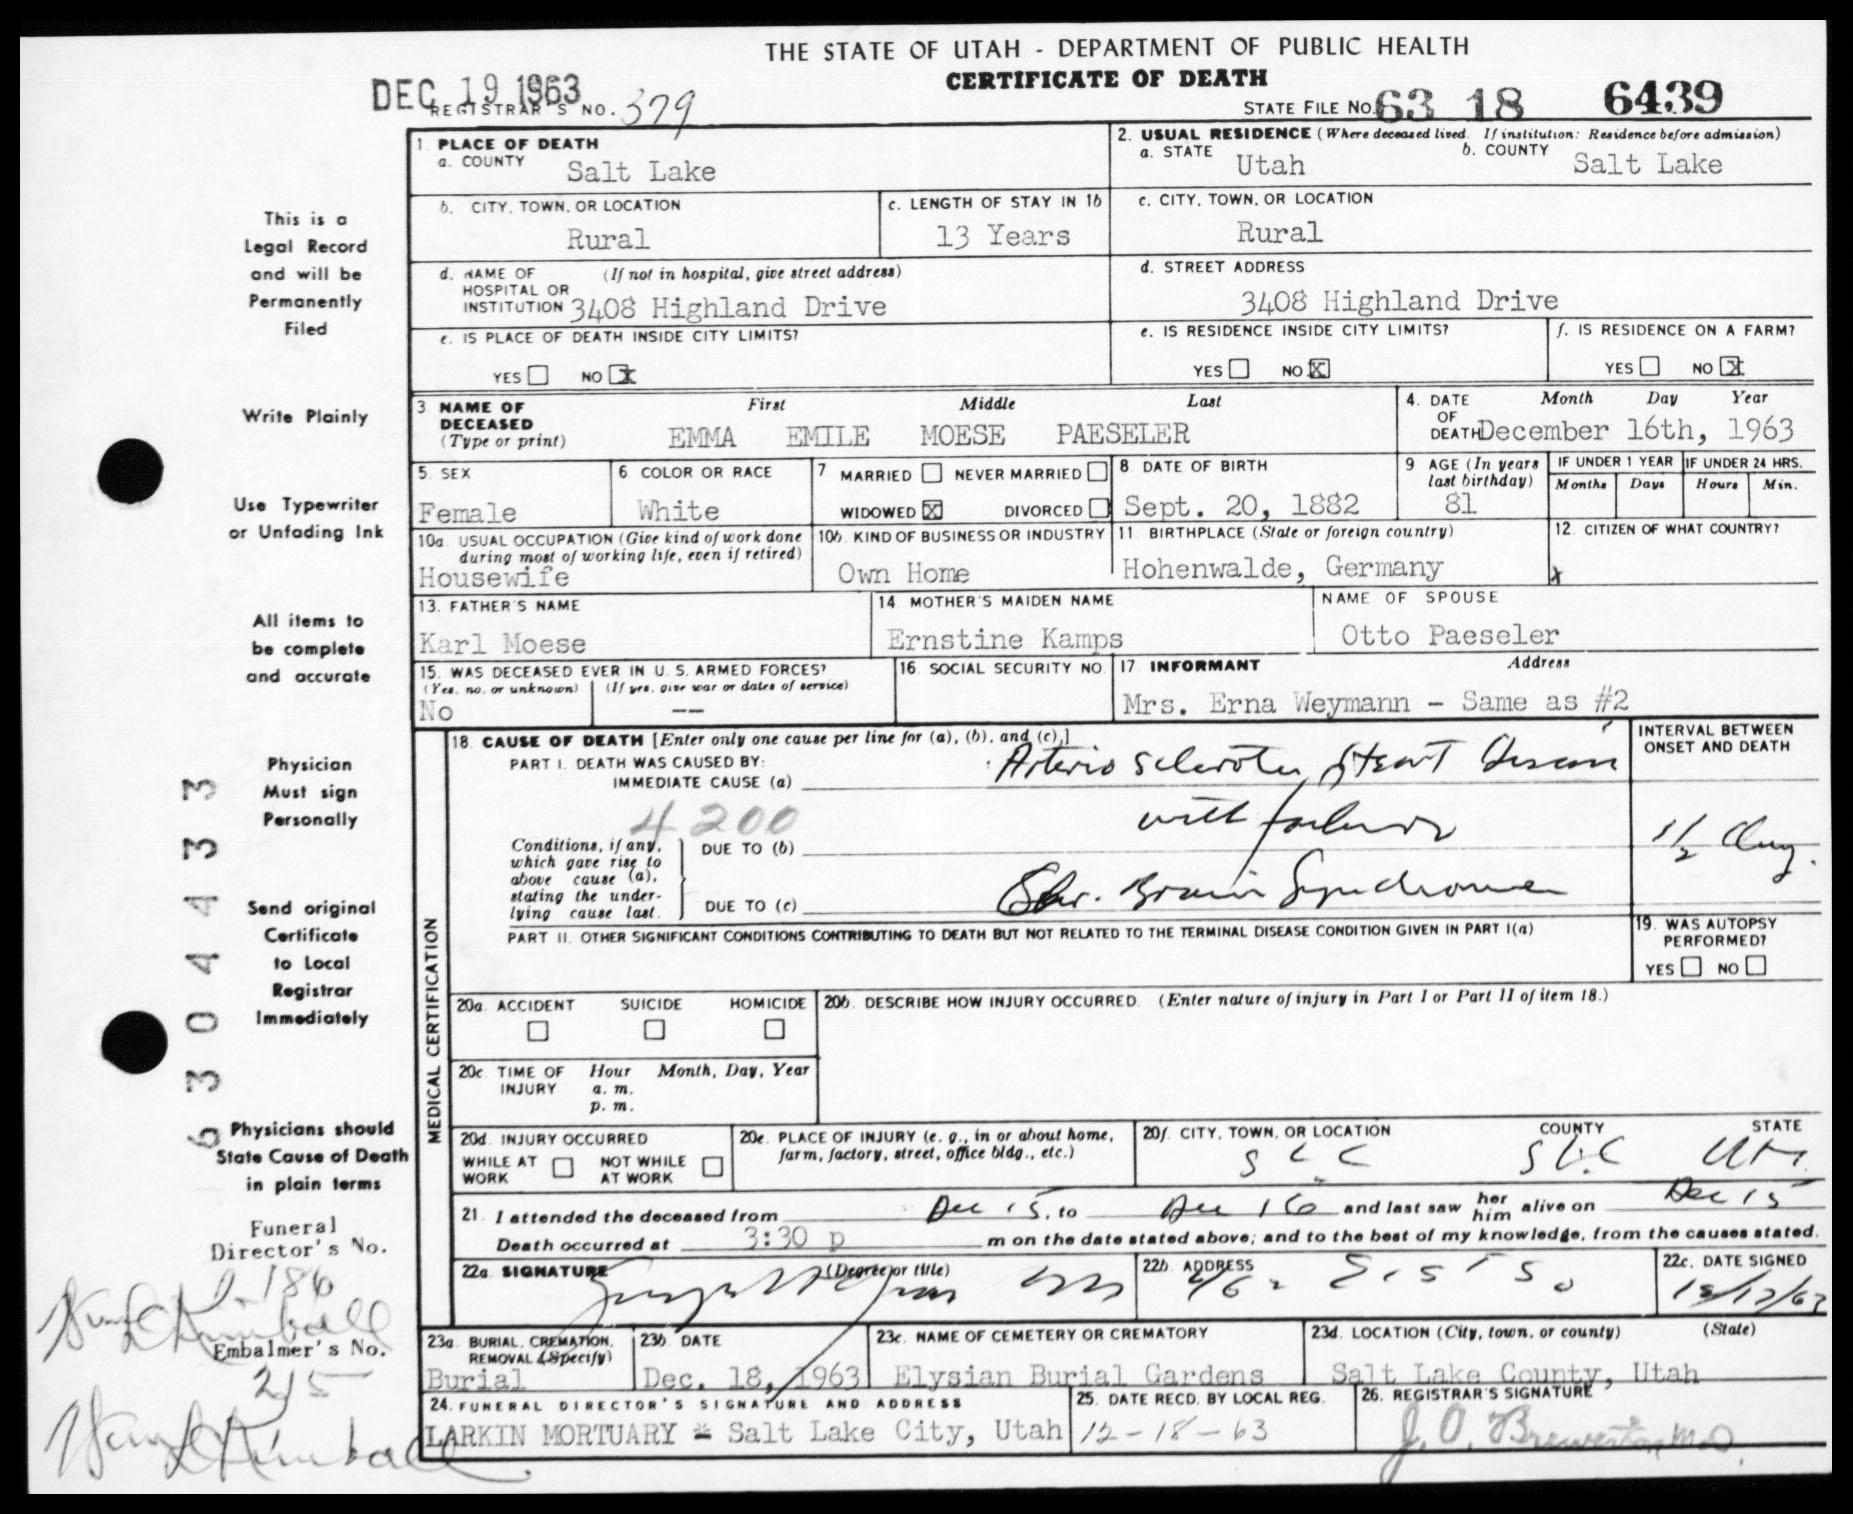 THE STATE OF UTAH - DEPARTMENT OF PUBLIC HEALTH
CERTIFICATE OF DEATH
DEC 19 1963
REGISTRAR'S NO. 379
STATE FILE NO. 63 18 6439
This is a
Legal Record
and will be
Permanently
Filed
Write Plainly
Use Typewriter
or Unfading Ink
All items to
be complete
and accurate
Physician
Must sign
Personally
Send original
Certificate
to Local
Registrar
Immediately
Physicians should
State Cause of Death
in plain terms
Funeral
Director's No.
186
Embalmer's No.
215
6 3 0 4 4 3 3
1. PLACE OF DEATH
a. COUNTY
Salt Lake
2. USUAL RESIDENCE (Where deceased lived. If institution: Residence before admission)
a. STATE Utah b. COUNTY Salt Lake
b. CITY, TOWN, OR LOCATION
Rural
c. LENGTH OF STAY IN 1b
13 Years
c. CITY, TOWN, OR LOCATION
Rural
d. NAME OF HOSPITAL OR INSTITUTION (If not in hospital, give street address)
3408 Highland Drive
d. STREET ADDRESS
3408 Highland Drive
e. IS PLACE OF DEATH INSIDE CITY LIMITS?
YES NO X
e. IS RESIDENCE INSIDE CITY LIMITS?
YES NO X
f. IS RESIDENCE ON A FARM?
YES NO X
3. NAME OF DECEASED (Type or print)
First Middle Last
EMMA EMILE MOESE PAESELER
4. DATE OF DEATH Month Day Year
December 16th, 1963
5. SEX
Female
6 COLOR OR RACE
White
7 MARRIED NEVER MARRIED
WIDOWED X DIVORCED
8. DATE OF BIRTH
Sept. 20, 1882
9 AGE (In years last birthday)
81
IF UNDER 1 YEAR
Months Days
IF UNDER 24 HRS.
Hours Min.
10a. USUAL OCCUPATION (Give kind of work done during most of working life, even if retired)
Housewife
10b. KIND OF BUSINESS OR INDUSTRY
Own Home
11. BIRTHPLACE (State or foreign country)
Hohenwalde, Germany
12. CITIZEN OF WHAT COUNTRY?
x
13. FATHER'S NAME
Karl Moese
14. MOTHER'S MAIDEN NAME
Ernstine Kamps
NAME OF SPOUSE
Otto Paeseler
15. WAS DECEASED EVER IN U. S. ARMED FORCES?
(Yes, no, or unknown) (If yes, give war or dates of service)
No --
16. SOCIAL SECURITY NO.
17 INFORMANT Address
Mrs. Erna Weymann - Same as #2
MEDICAL CERTIFICATION
18. CAUSE OF DEATH [Enter only one cause per line for (a), (b), and (c).]
PART I. DEATH WAS CAUSED BY:
IMMEDIATE CAUSE (a) Arterio Sclerotic Heart Disease
4200
Conditions, if any, which gave rise to above cause (a), stating the underlying cause last.
DUE TO (b) with failure
DUE TO (c) Chr. Brain Syndrome
INTERVAL BETWEEN ONSET AND DEATH
1 1/2 Day.
PART II. OTHER SIGNIFICANT CONDITIONS CONTRIBUTING TO DEATH BUT NOT RELATED TO THE TERMINAL DISEASE CONDITION GIVEN IN PART I(a)
19. WAS AUTOPSY PERFORMED?
YES NO
20a. ACCIDENT SUICIDE HOMICIDE
20b. DESCRIBE HOW INJURY OCCURRED. (Enter nature of injury in Part I or Part II of item 18.)
20c. TIME OF INJURY Hour Month, Day, Year
a. m.
p. m.
20d. INJURY OCCURRED
WHILE AT WORK NOT WHILE AT WORK
20e. PLACE OF INJURY (e. g., in or about home, farm, factory, street, office bldg., etc.)
20f. CITY, TOWN, OR LOCATION COUNTY STATE
S L C S L C Utah
21. I attended the deceased from Dec 15, to Dec 16 and last saw her him alive on Dec 15
Death occurred at 3:30 p m on the date stated above; and to the best of my knowledge, from the causes stated.
22a. SIGNATURE (Degree or title)
22b. ADDRESS
22c. DATE SIGNED
12/17/63
23a. BURIAL, CREMATION, REMOVAL (Specify)
Burial
23b. DATE
Dec. 18, 1963
23c. NAME OF CEMETERY OR CREMATORY
Elysian Burial Gardens
23d. LOCATION (City, town, or county) (State)
Salt Lake County, Utah
24. FUNERAL DIRECTOR'S SIGNATURE AND ADDRESS
LARKIN MORTUARY - Salt Lake City, Utah
25. DATE RECD. BY LOCAL REG.
12-18-63
26. REGISTRAR'S SIGNATURE
J. O. Brewerton M.D.